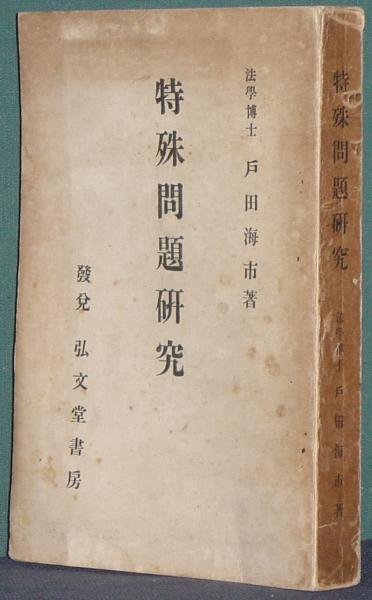 法學博士 戸田海市著
特殊問題研究
發兌 弘文堂書房
特殊問題研究 法學博士 戸田海市著